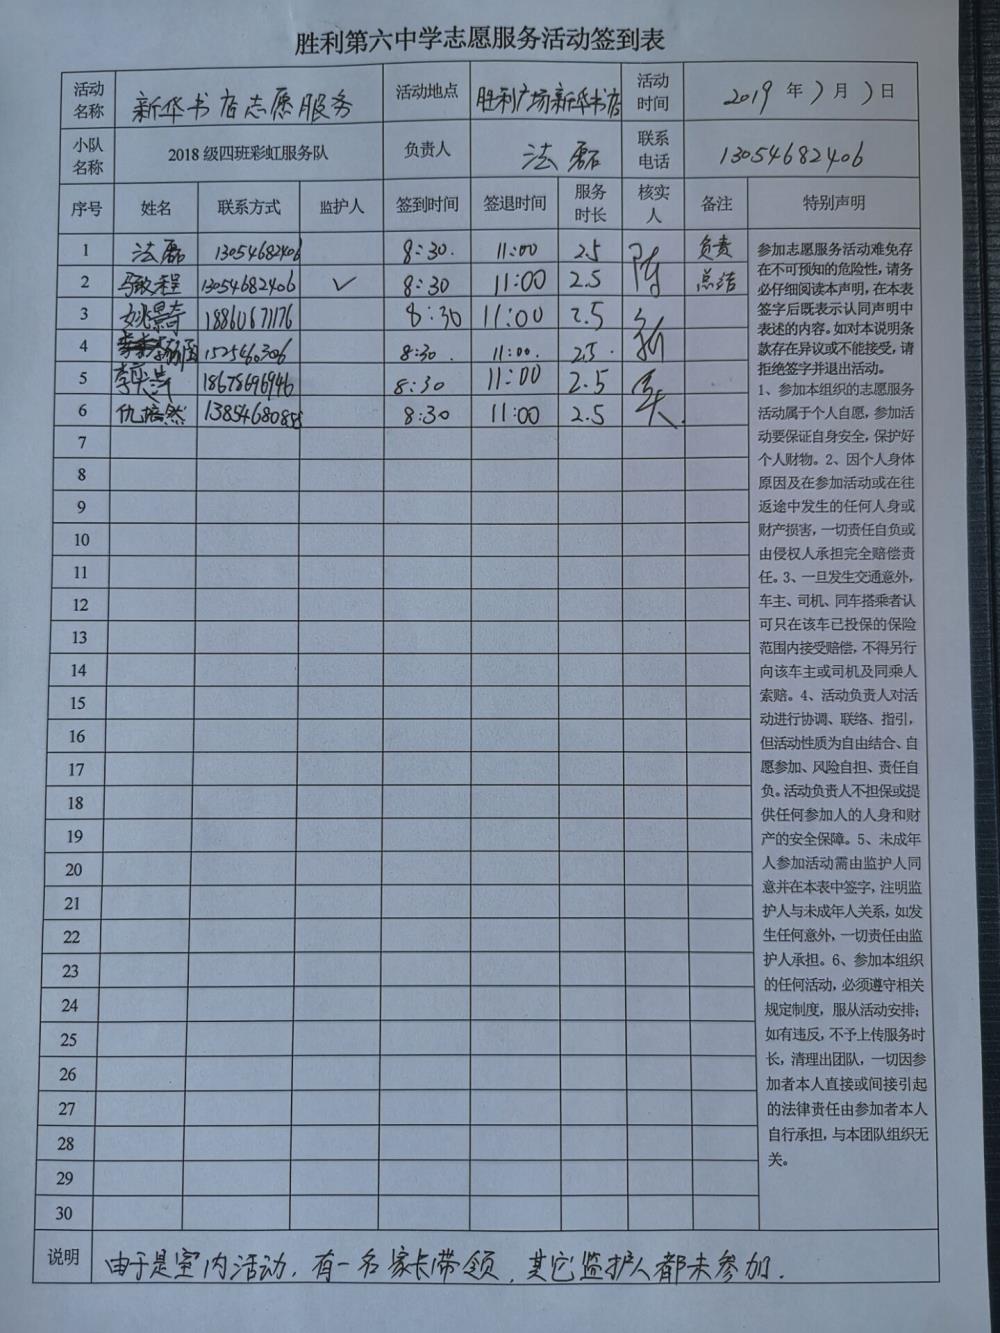 胜利第六中学志愿服务活动签到表
活动名称 新华书店志愿服务 活动地点 胜利广场新华书店 活动时间 2019 年 7 月 7 日
小队名称 2018 级四班彩虹服务队 负责人 法磊 联系电话 13054682406
序号 姓名 联系方式 监护人 签到时间 签退时间 服务时长 核实人 备注 特别声明
1 法磊 13054682406 8:30. 11:00 2.5 陈 负责
2 13054682406 ✓ 8:30 11:00 2.5 总结
3 姚景奇 18860671176 8:30 11:00 2.5
4 8:30. 11:00. 2.5.
5 18678696946 8:30 11:00 2.5
6 仇培然 8:30 11:00 2.5
7
8
9
10
11
12
13
14
15
16
17
18
19
20
21
22
23
24
25
26
27
28
29
30
参加志愿服务活动难免存
在不可预知的危险性，请务
必仔细阅读本声明，在本表
签字后既表示认同声明中
表述的内容。如对本说明条
款存在异议或不能接受，请
拒绝签字并退出活动。
1、参加本组织的志愿服务
活动属于个人自愿，参加活
动要保证自身安全，保护好
个人财物。2、因个人身体
原因及在参加活动或在往
返途中发生的任何人身或
财产损害，一切责任自负或
由侵权人承担完全赔偿责
任。3、一旦发生交通意外，
车主、司机、同车搭乘者认
可只在该车已投保的保险
范围内接受赔偿，不得另行
向该车主或司机及同乘人
索赔。4、活动负责人对活
动进行协调、联络、指引，
但活动性质为自由结合、自
愿参加、风险自担、责任自
负。活动负责人不担保或提
供任何参加人的人身和财
产的安全保障。5、未成年
人参加活动需由监护人同
意并在本表中签字，注明监
护人与未成年人关系，如发
生任何意外，一切责任由监
护人承担。6、参加本组织
的任何活动，必须遵守相关
规定制度，服从活动安排；
如有违反，不予上传服务时
长，清理出团队，一切因参
加者本人直接或间接引起
的法律责任由参加者本人
自行承担，与本团队组织无
关。
说明 由于是室内活动，有一名家长带领，其它监护人都未参加.